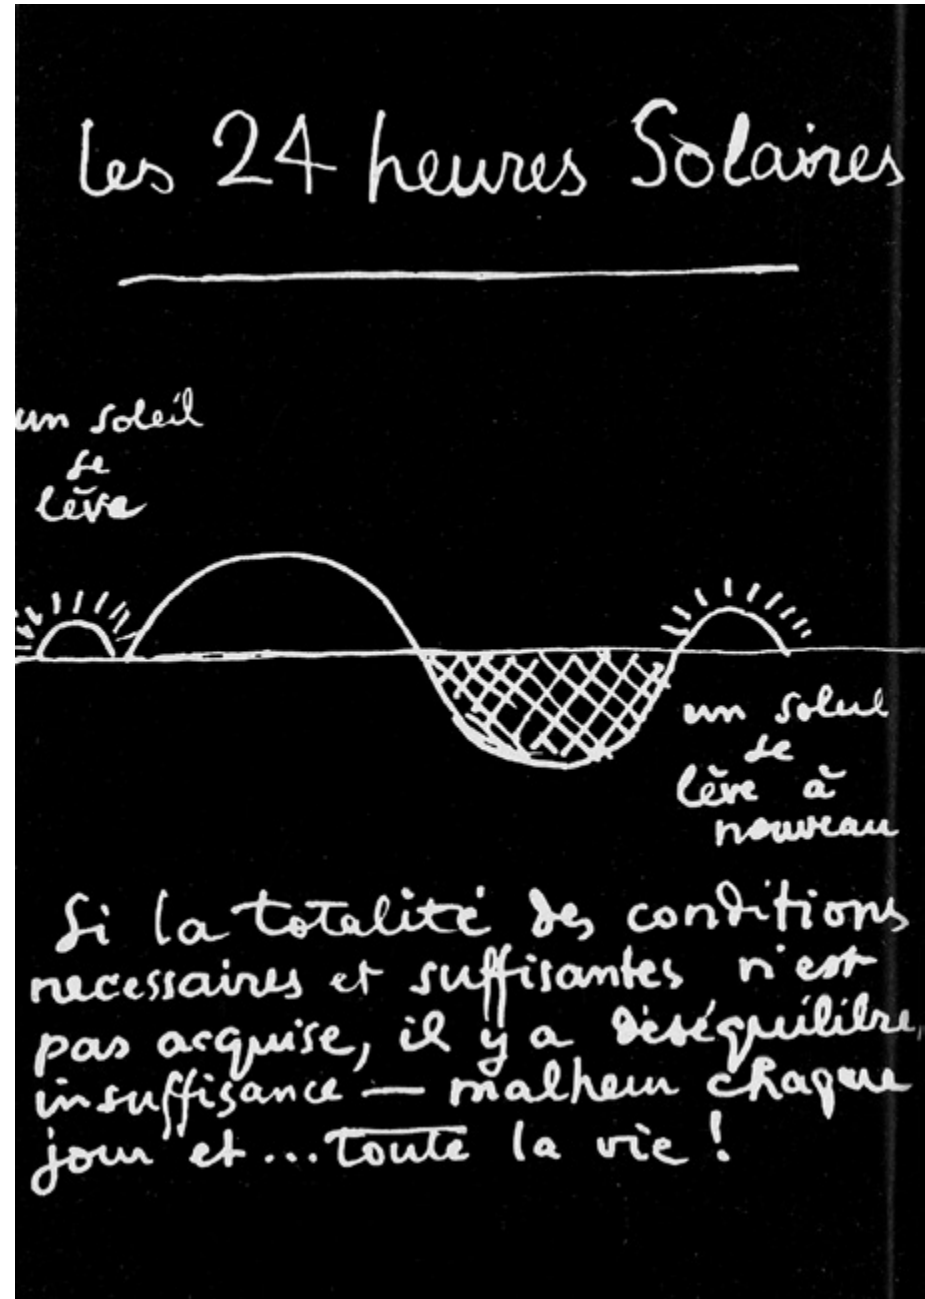 les 24 heures Solaires
un soleil
se
lève
un soleil
se
lève à
nouveau
Si la totalité des conditions
necessaires et suffisantes n'est
pas acquise, il y a déséquilibre,
insuffisance — malheur chaque
jour et ... toute la vie !